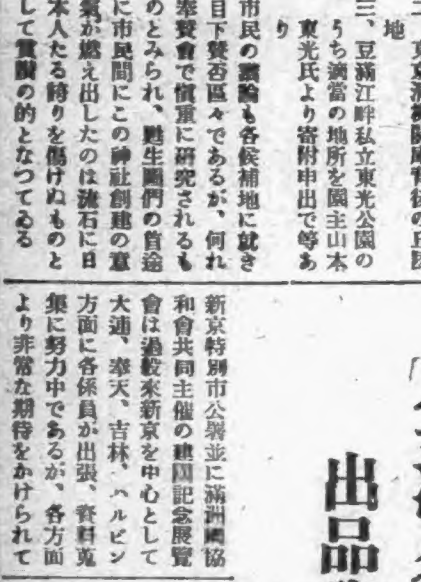 地
三、豆滿江畔私立東光公園の
うち適當の地所を園主山本
東光氏より寄附申出で等あ
り
市民の議論も各候補地に就き
目下贊否區々であるが、何れ
奉贊會で愼重に硏究されるも
のとみられ、甦生圖們の首途
に市民間にこの神社創建の意
氣が燃え出したのは流石に日
本人たる誇りを傷けぬものと
して賞讃の的となつてゐる
出品
新京特別市公署並に滿洲國協
和會共同主催の建國記念展覽
會は過般來新京を中心として
大連、奉天、吉林、ハルビン
方面に各係員が出張、資料蒐
集に努力中であるが、各方面
より非常な期待をかけられて